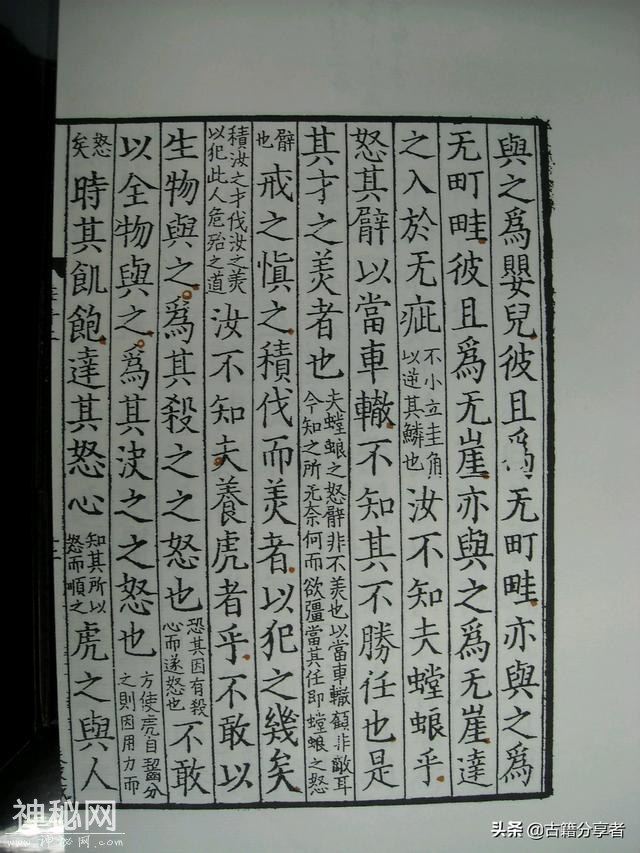 與之爲嬰兒彼且爲无町畦亦與之爲
无町畦彼且爲无崖亦與之爲无崖達
之入於无疵不小立圭角以逆其鱗也汝不知夫螳蜋乎
怒其臂以當車轍不知其不勝任也是
其才之美者也夫螳蜋之怒臂非不美也以當車轍顧非敵耳今知之所无奈何而欲彊當其任即螳蜋之怒
臂也戒之慎之積伐而美者以犯之幾矣
積汝之才伐汝之美以犯此人危殆之道汝不知夫養虎者乎不敢以
生物與之爲其殺之之怒也恐其因有殺心而遂怒也不敢
以全物與之爲其決之之怒也方使虎自齧分之則因用力而
怒矣時其飢飽達其怒心知其所以怒而順之虎之與人
神秘网
头条 @古籍分享者